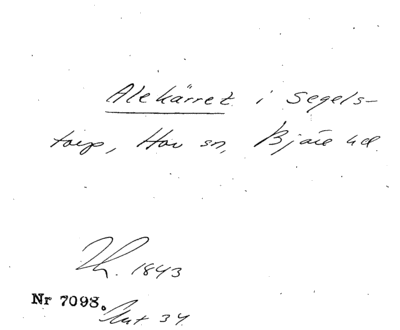 Alekärret i Segels-
torp, Hov sn, Bjäre hd
Th. 1843
Nr 7098.
Ant 34